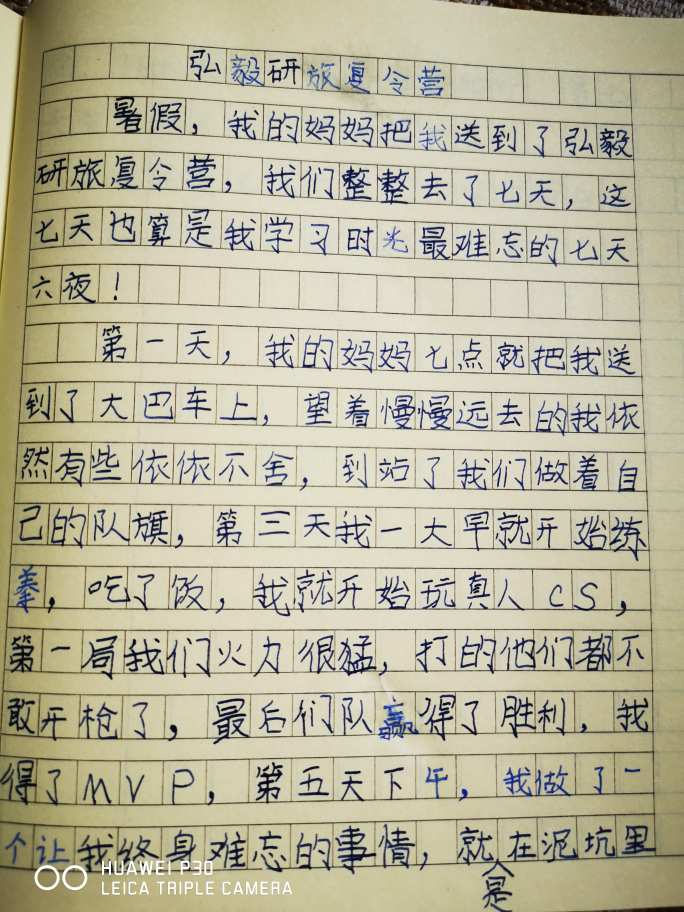 弘毅研旅夏令营
暑假，我的妈妈把我送到了弘毅
研旅夏令营，我们整整去了七天，这
七天也算是我学习时光最难忘的七天
六夜！
第一天，我的妈妈七点就把我送
到了大巴车上，望着慢慢远去的我依
然有些依依不舍，到站了我们做着自
己的队旗，第三天我一大早就开始练
拳，吃了饭，我就开始玩真人CS，
第一局我们火力很猛，打的他们都不
敢开枪了，最后们队赢得了胜利，我
得了MVP，第五天下午，我做了一
个让我终身难忘的事情，就是在泥坑里
HUAWEI P30
LEICA TRIPLE CAMERA